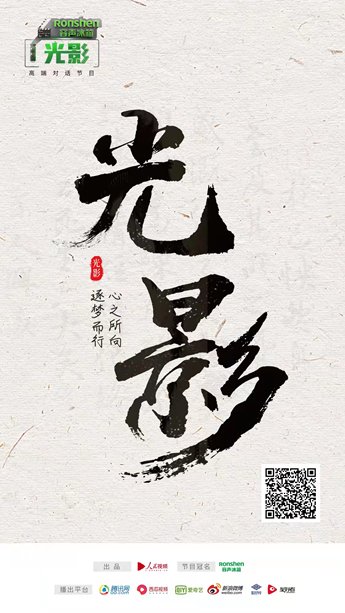 Ronshen
容声冰箱
光影
高端对话节目
光影
光影
心之所向
逐梦而行
出品 人民视频 节目冠名 Ronshen 容声冰箱
播出平台 腾讯网 西瓜视频 爱奇艺 新浪微博 weibo.com